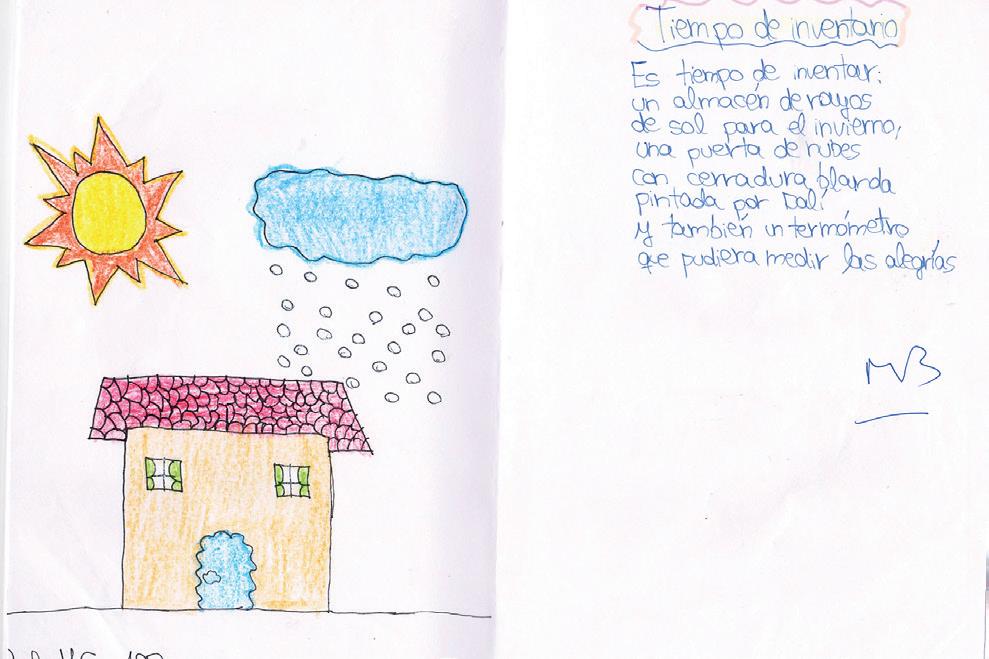 Tiempo de inventario
Es tiempo de inventar:
un almacén de rayos
de sol para el invierno,
una puerta de nubes
con cerradura blanda
pintada por Dalí
y también un termómetro
que pudiera medir las alegrías
MB